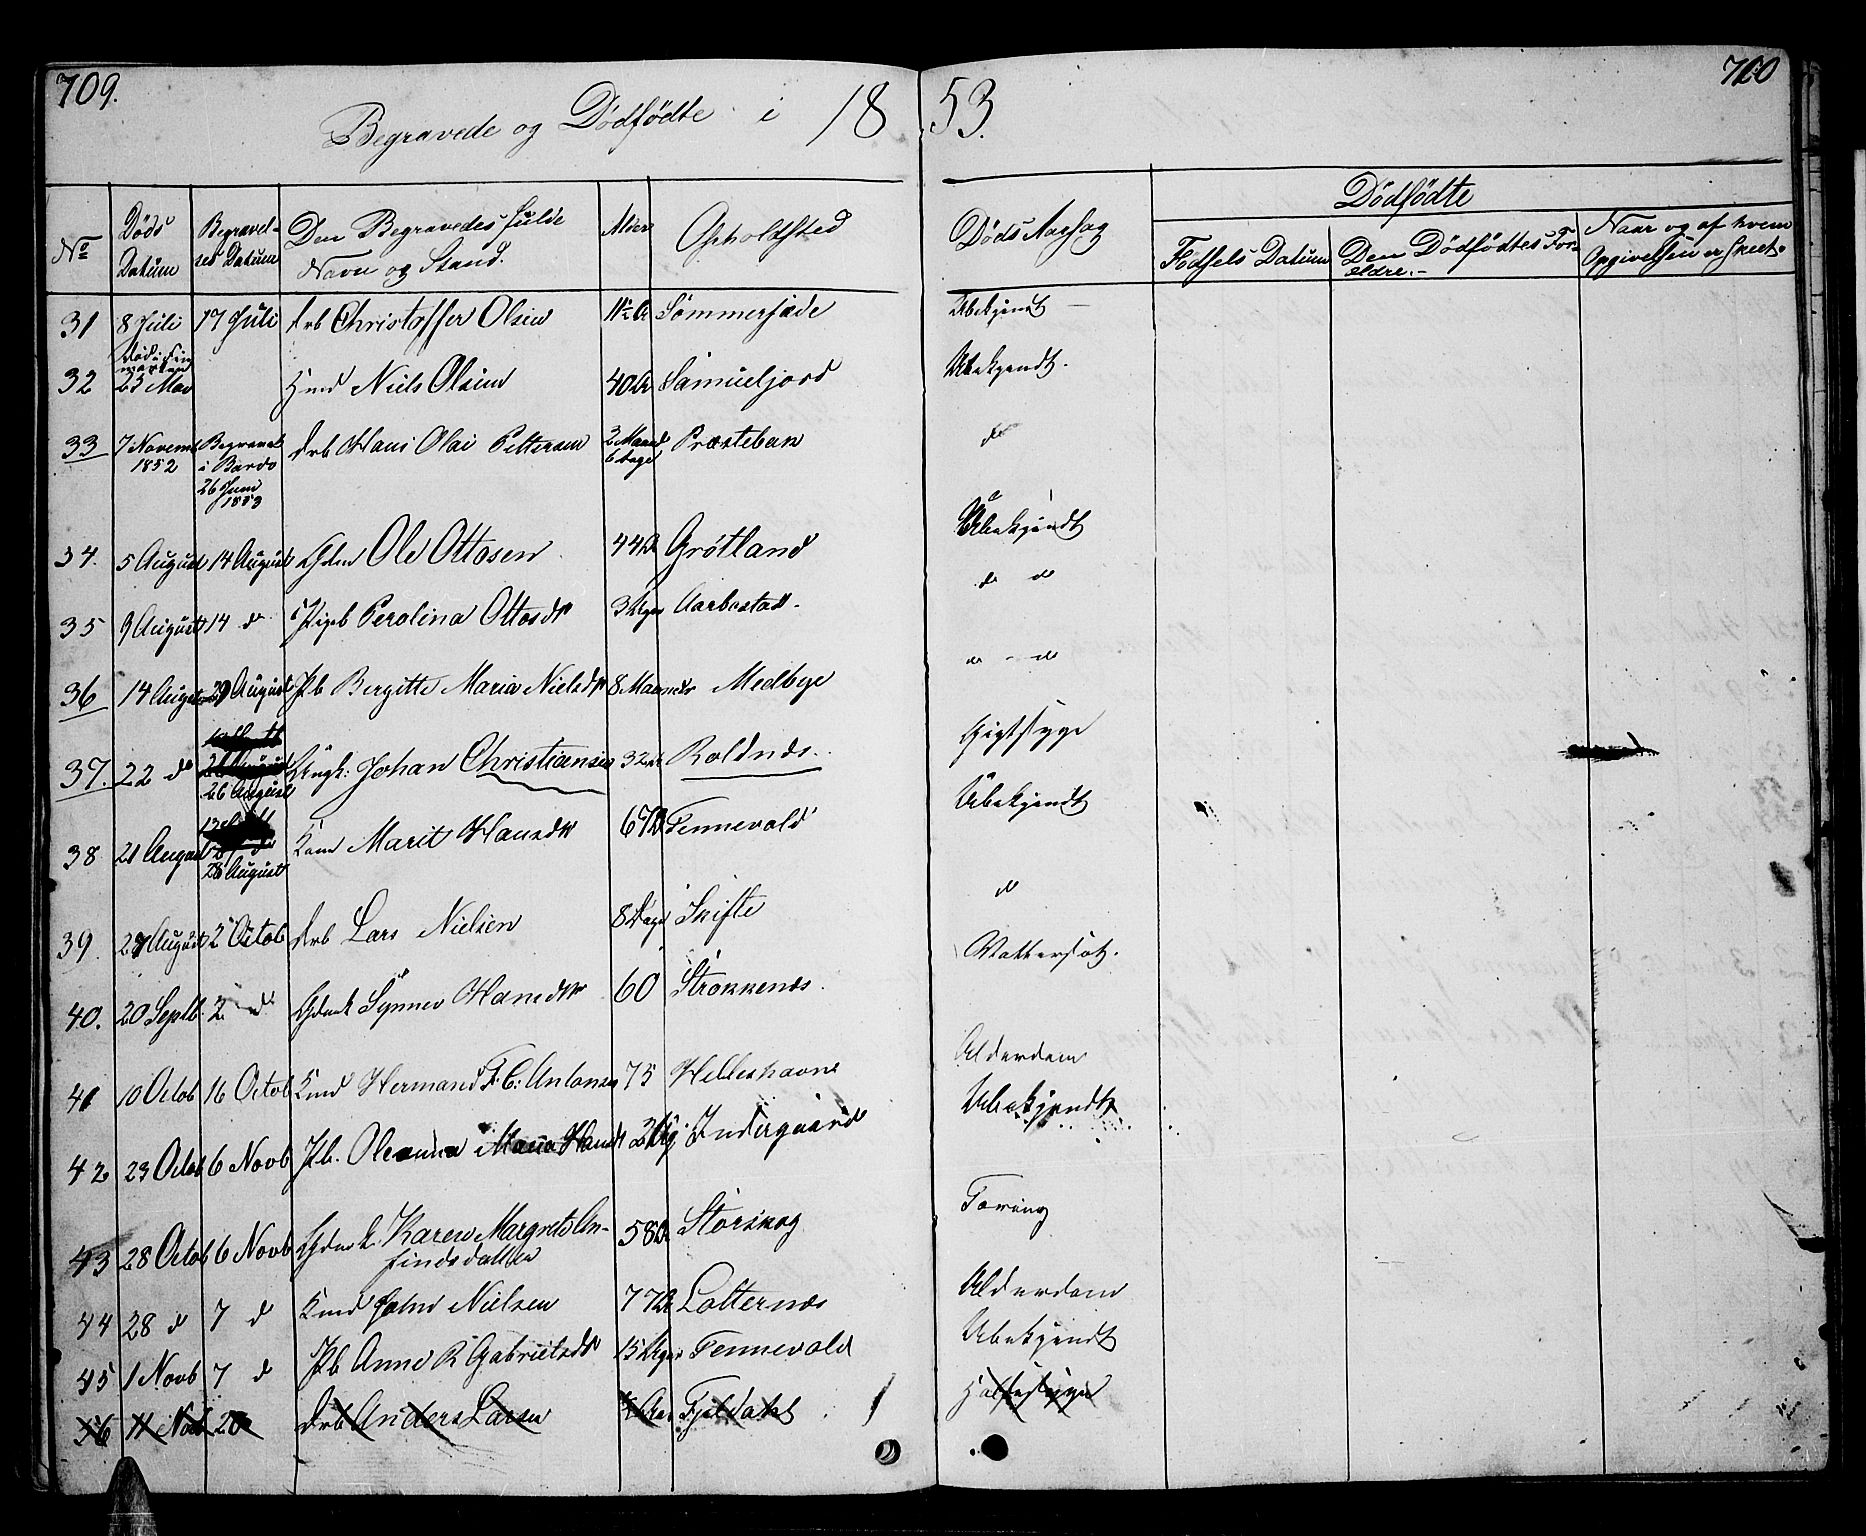 709.
700
Begravede og Dødfødte i 1853.
No
Døds Datum
Begravelses Datum
Den Begravedes fulde Navn og Stand.
Alder
Opholdsted
Døds Aarsag
Dødfødte
Fødsels Datum
Den Dødfødtes Forældre.-
Naar og af hvem Opgivelsen er skeet.
31 8 Juli 17 Juli drb Christoffer Olsen Sømmersæde Ubekjendt
32 23 Mai Niels Olsen 40 Samueljord Ubekjendt.
33 7 Novemb 1852 Begravet i Bardo 26 Juni 1853 drb Hans Olai Pettersen 2 Maand 6 dage Præstebak do
34. 5 August 14 August Ole Ottosen 44 Grøtland Ubekjendt
35 9 August 14 d Pigeb Perolina Ottosdr 3 Uger Aarbostad. do do
36 14 August 29 August Pb Bergitte Maria Nielsdr 8 Maaneder Medbye do - do
37. 22 do 26 August Ungk: Johan Christiansen 32 Roldnæs. Gigtsyge
38 21 August 28 August Kone Marit Hansdr 67 Tennevold Ubekjendt
39. 27 August 2 Octob drb Lars Nielsen 8 Dage Skifte do
40. 20 Septb. 2 d Synnev Hansdr 60 Strokkenæs. Vattersot.
41 10 Octob 16 Octob Hermand F: C: Antonsen 75 Helleshavn Alderdom
42 23 Octob 6 Novb Pb. Oleanna Maria Hansdr Indergaard Ubekjendt
43 28 Octob 6 Novb Karen Margrete Anfindsdatter 58 Storskog Tæring
44 28 d 7 d John Nielsen 77 Lotternæs Alderdom
45 1 Novb 7 d Pb Anne R Gabrielsdr 15 Uger Tennevold Ubekjendt
36 11 Nov 20 drb Anders Larsen Fjeldaket Halsesyge